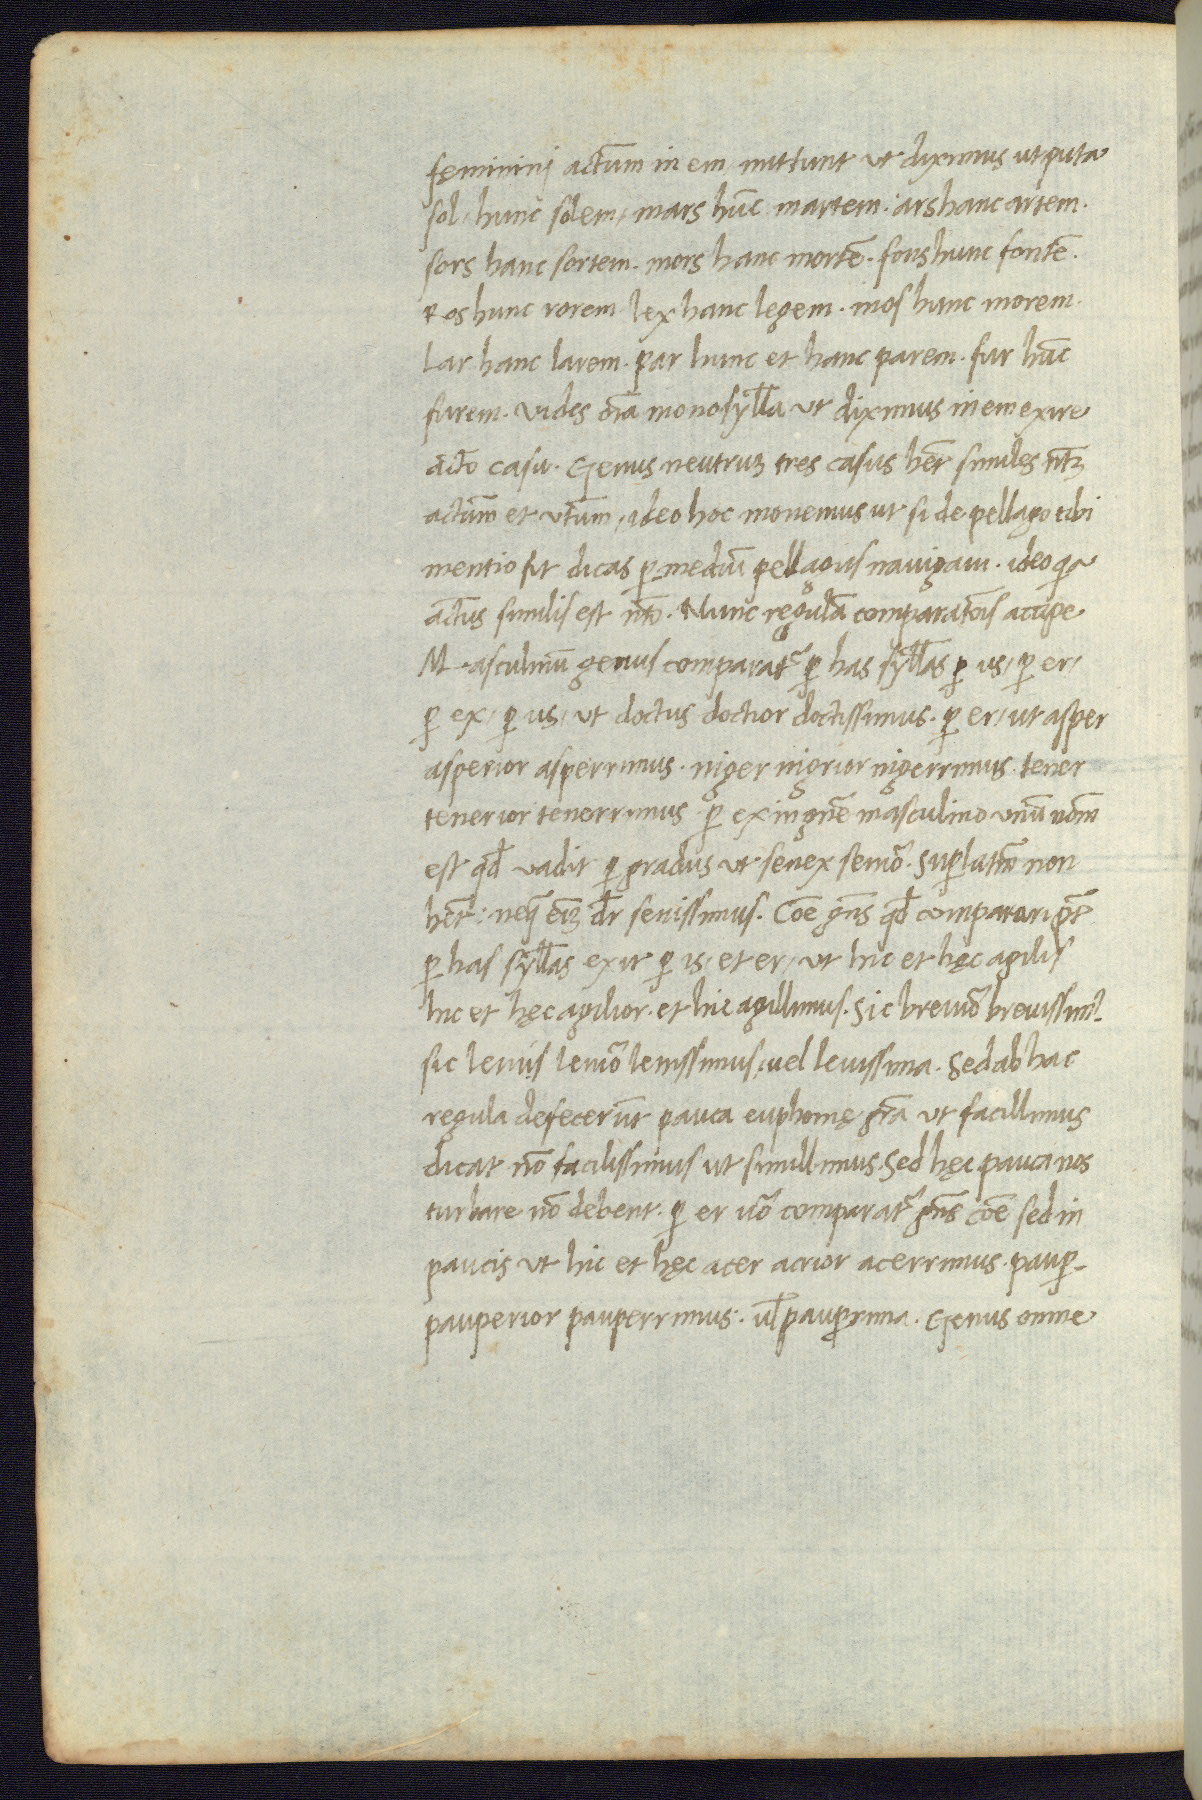 fęminini actūm in em mittunt ut diximus ut puta
sol, hunc solem, mars hūc martem. ars hanc artem.
sors hanc sortem. mors hanc mortē. fons hunc fontē.
Ros hunc rorem lex hanc legem. mos hunc morem.
Lar hanc larem. par hunc et hanc parem. fur hūc
furem. Vides oīa monosyllā ut diximus in em exire
ācto casu. Genus neutruꝫ tres casus hēt similes nt̄ꝫ
actūm et vt̄um, ideo hoc monemus ut si de pellago tibi
mentio fit dicas ꝑ mediū pellagus nauigaui. ideo qa
act̄us similis est nt̄o. Nunc regulā comparatōis accipe
Masculinū genus comparat̄ ꝑ has syll̄as ꝑ us, ꝑ er,
ꝑ ex, ꝑ us, ut doctus doctior doctissimus. ꝑ er, ut asper
asperior asperrimus. niger nigrior nigerrimus. tener
tenerior tenerrimus ꝑ ex in gn̄e masculino unū nom̄
est qd̄ vadit ꝑ gradus ut senex senior̄. Suꝑlatm̄ non
hēt: neq̄ eīꝫ dr̄ senissimus. Cōe gn̄s qd̄ comparari pt̄
ꝑ has syll̄as exit ꝑ is, et er, ut hic et hęc agilis
hic et hęc agilior. et hic agillimus. Sic breuior̄ breuissim̄.
sic leuis leuior̄ leuissimus, uel leuissima. Sed ab hac
regula defecerūt pauca euphonię gr̄a ut facillimus
dicat nō facilissimus ut simillimus. Sed hęc pauca nos
turbare nō debent. ꝑ er uo᷑ comparat̄ gn̄s cōe sed in
paucis ut hic et hęc acer acrior acerrimus. pauꝑ
pauperior pauperrimus. ul̄ pauꝑrima. Genus omne